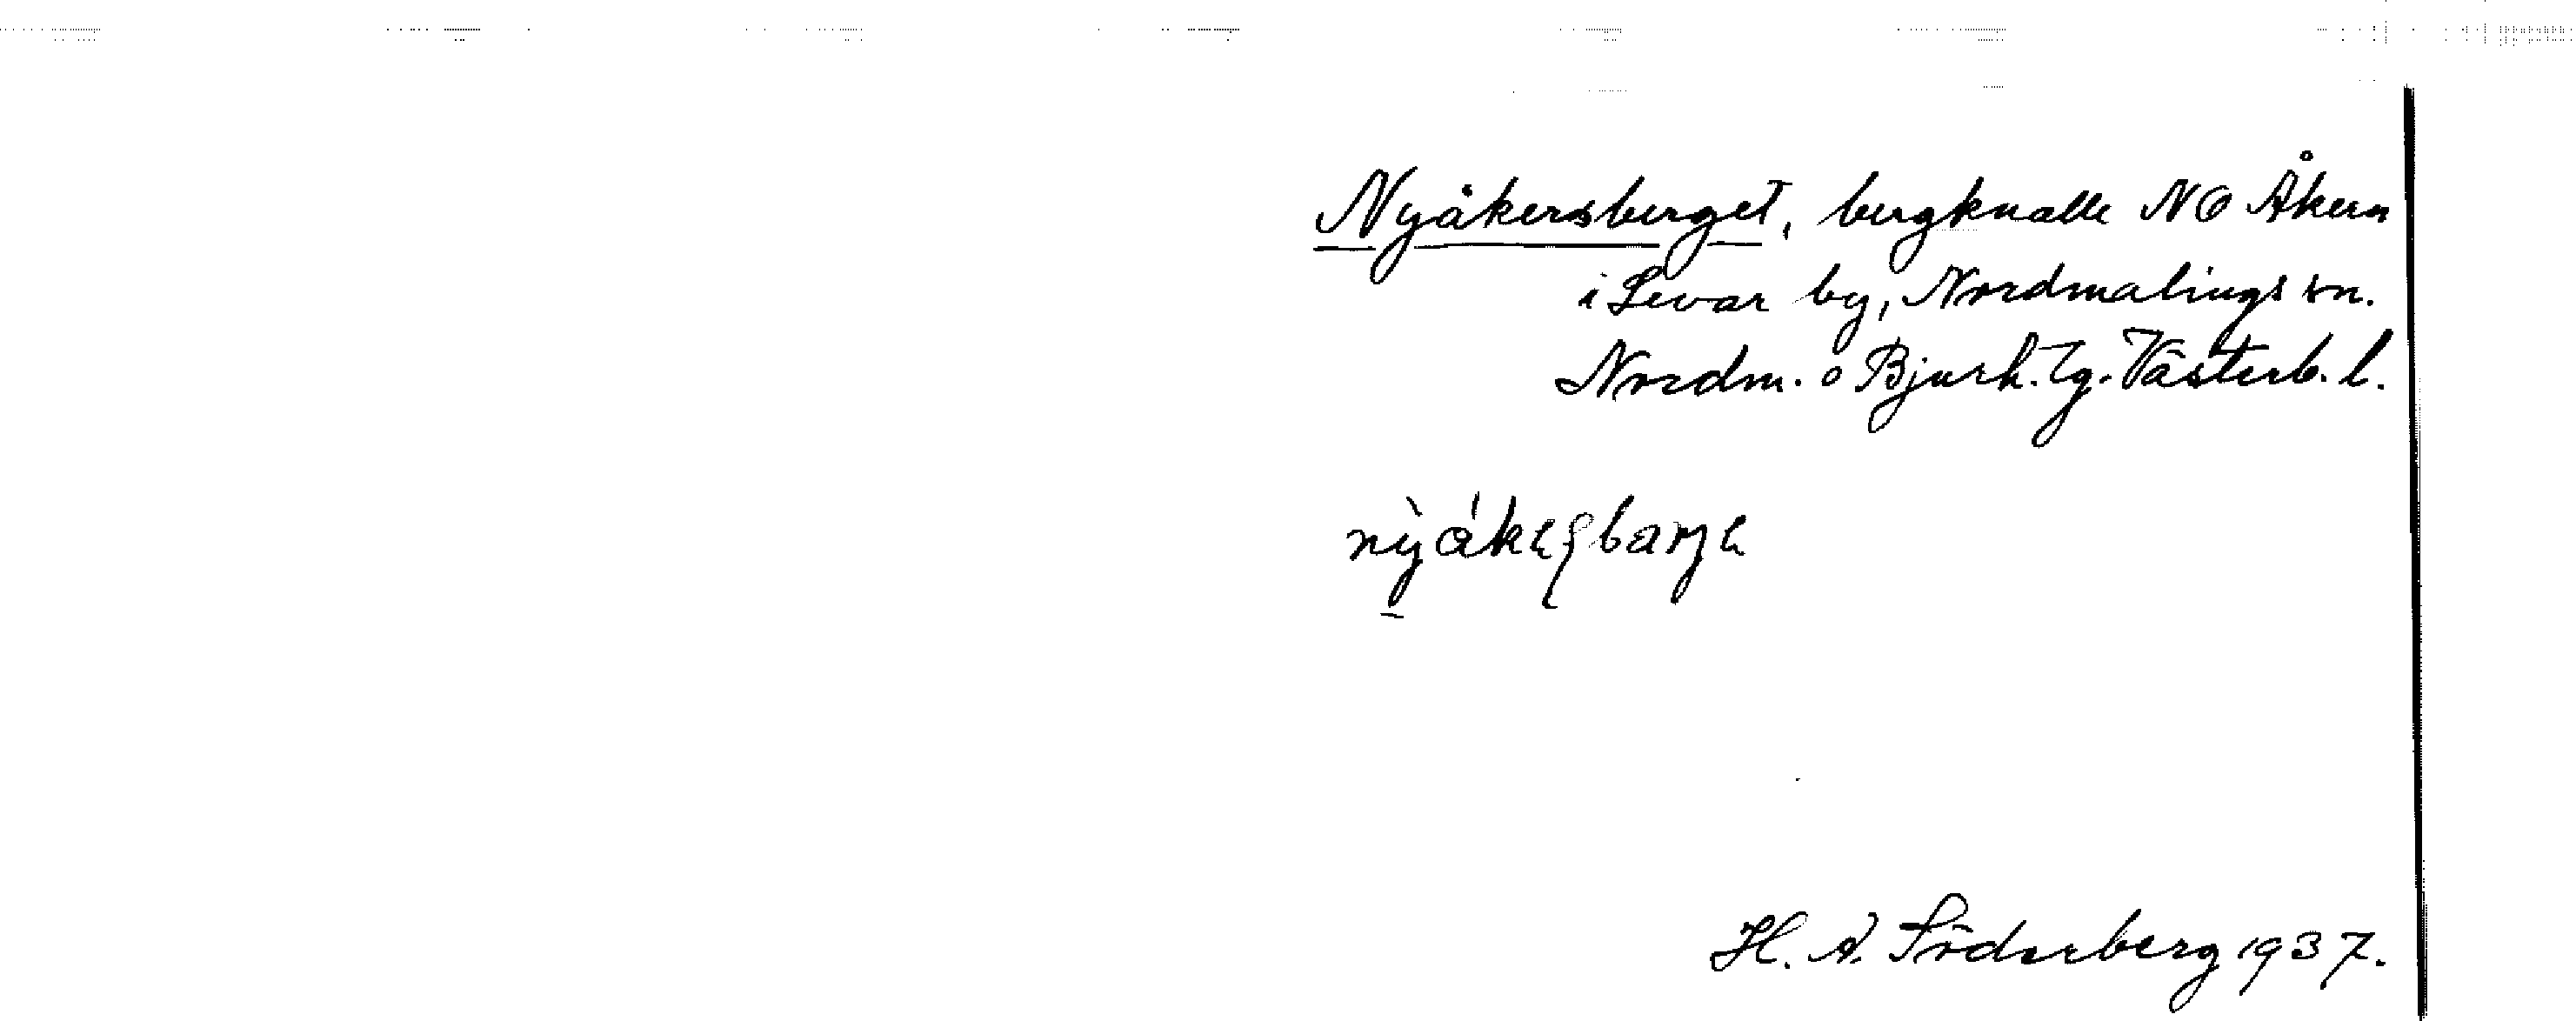 Nyåkersberget, bergknalle NO Åkern
i Levar by, Nordmalings sn.
Nordm. o Bjurh. tg. Västerb. l.
H. A. Söderberg 1937.